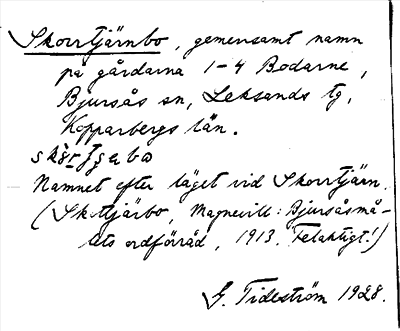 Skorrtjärnbo, gemensamt namn
på gårdarna 1-4 Bodarne,
Bjursås sn, Leksands tg,
Kopparbergs län.
Namnet efter läget vid Skorrtjärn.
(Skottjärbo, Magnevill: Bjursåsmå-
lets ordförråd, 1913. Felaktigt!)
G. Tideström 1928.